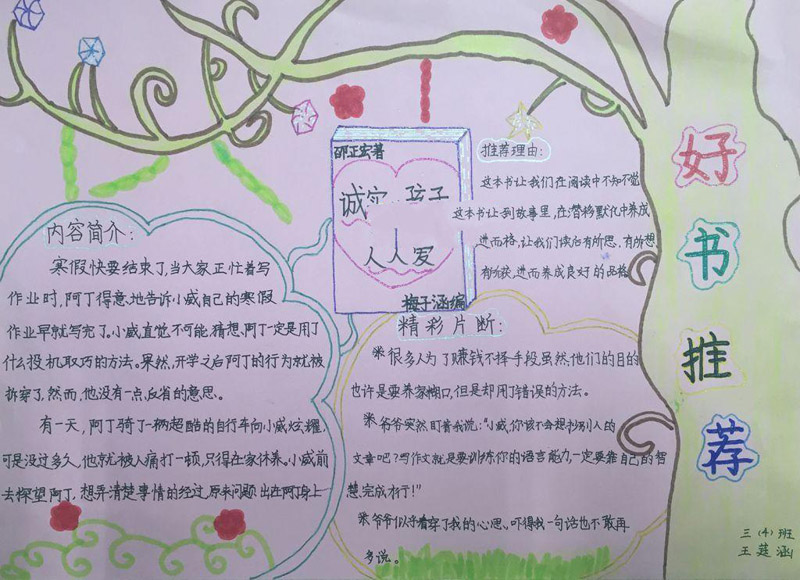 好书推荐
邵正宏著
诚实 孩子
人人爱
梅子涵编
推荐理由:
这本书让我们在阅读中不知不觉
这本书让到故事里,在潜移默化中养成
进而格,让我们读后有所思、有所想、
有所获,进而养成良好的品格
内容简介:
寒假快要结束了,当大家正忙着写
作业时,阿丁得意地告诉小威自己的寒假
作业早就写完了。小威直觉不可能,猜想,阿丁一定是用了
什么投机取巧的方法。果然,开学之后阿丁的行为就被
拆穿了,然而,他没有一点反省的意思。
有一天,阿丁骑了一辆超酷的自行车向小威炫耀,
可是没过多久,他就被人痛打一顿,只得在家休养。小威前
去探望阿丁,想弄清楚事情的经过,原来问题出在阿丁身上
精彩片断:
※很多人为了赚钱不择手段,虽然,他们的目的
也许是要养家糊口,但是却用了错误的方法。
※爷爷突然盯着我说:“小威,你该不会想抄别人的
文章吧?写作文就是要训练你的语言能力,一定要靠自己的智
慧完成才行!”
※爷爷似乎看穿了我的心思、吓得我一句话也不敢再
多说。
三(4)班
王莲涵